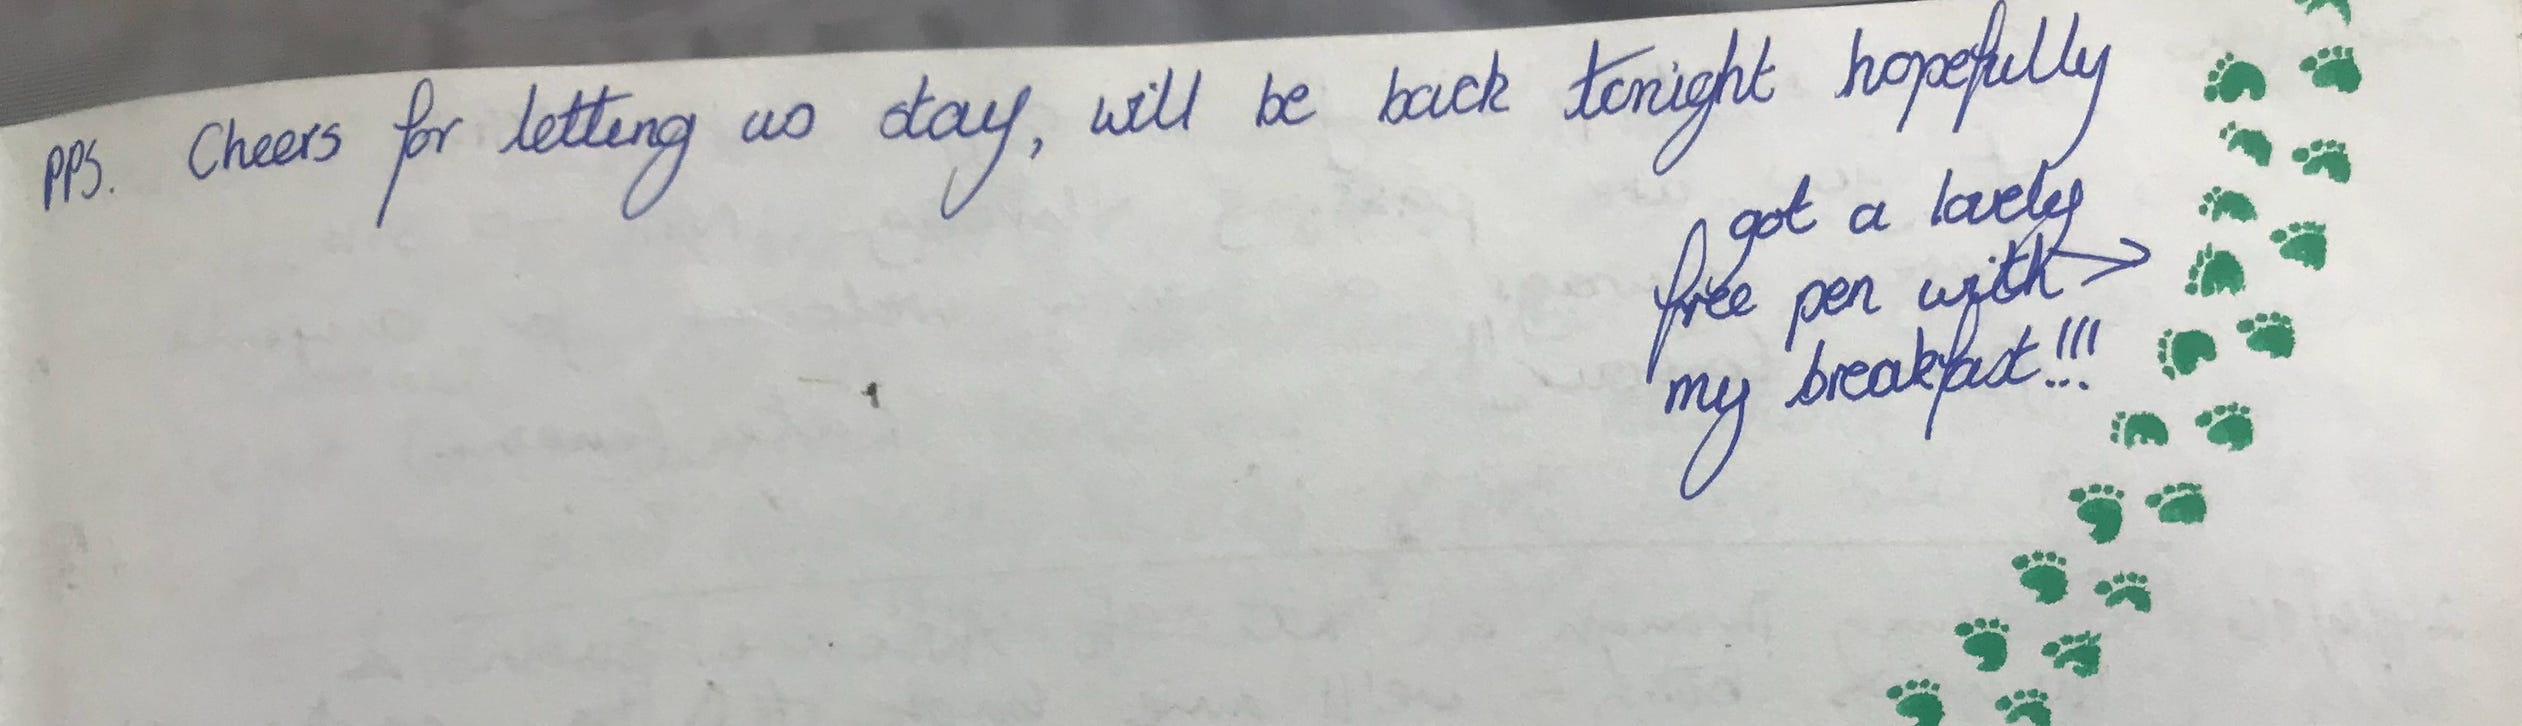 PPS. Cheers for letting us stay, will be back tonight hopefully
got a lovely
free pen with
my breakfast!!!